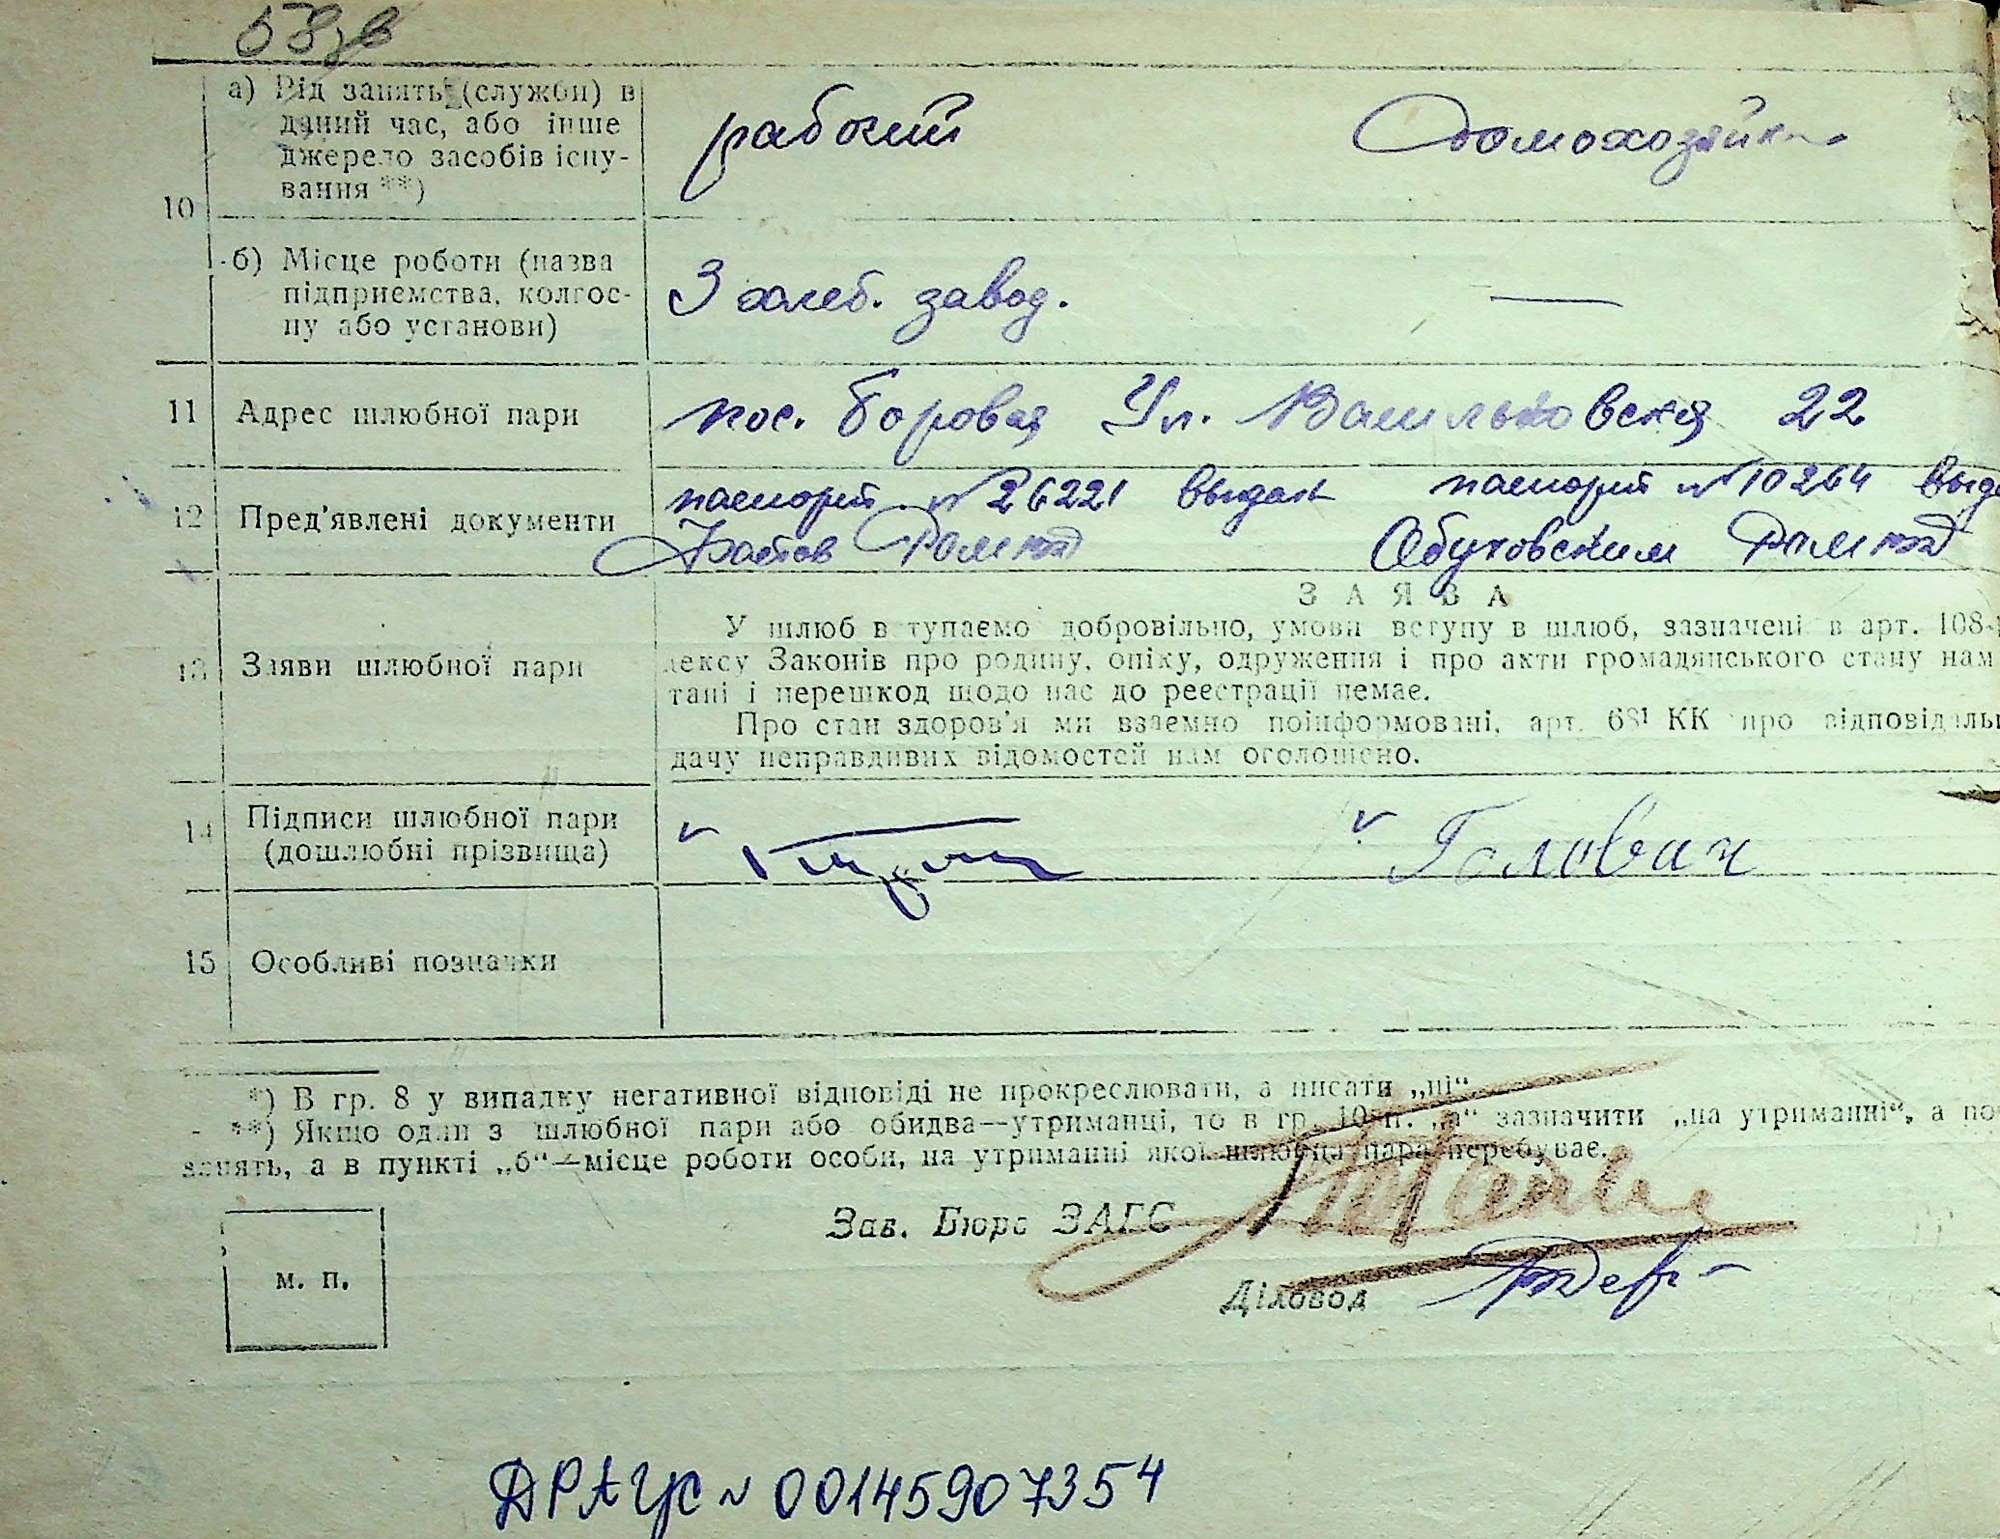 58зв
а) Рід занять (служби) в
даний час, або інше
джерело засобів існу-
вання **)
рабочий
Домохозяйка
10
б) Місце роботи (назва
підприємства, колгос-
пу або установи)
3 хлеб. завод.
—
11 Адрес шлюбної пари
пос. Боровая Ул. Васильковская 22
12 Пред'явлені документи
паспорт № 26221 выдан
паспорт № 10264 выда
Фастов Роммил
Обуховским Роммил
З А Я В А
13 Заяви шлюбної пари
У шлюб вступаємо добровільно, умови вступу в шлюб, зазначені в арт. 108-
дексу Законів про родину, опіку, одруження і про акти громадянського стану нам
тані і перешкод щодо нас до реєстрації немає.
Про стан здоров'я ми взаємно поінформовані, арт. 68¹ КК про відповідаль
дачу неправдивих відомостей нам оголошено.
14 Підписи шлюбної пари
(дошлюбні прізвища)
Головач
15 Особливі позначки
*) В гр. 8 у випадку негативної відповіді не прокреслювати, а писати „ні“
**) Якщо один з шлюбної пари або обидва—утриманці, то в гр. 10 п. „а“ зазначити „на утриманні“, а по
занять, а в пункті „б“—місце роботи особи, на утриманні якої шлюбна пара перебуває.
Зав. Бюро ЗАГС
м. п.
Діловод
ДРАЦС № 00145907354